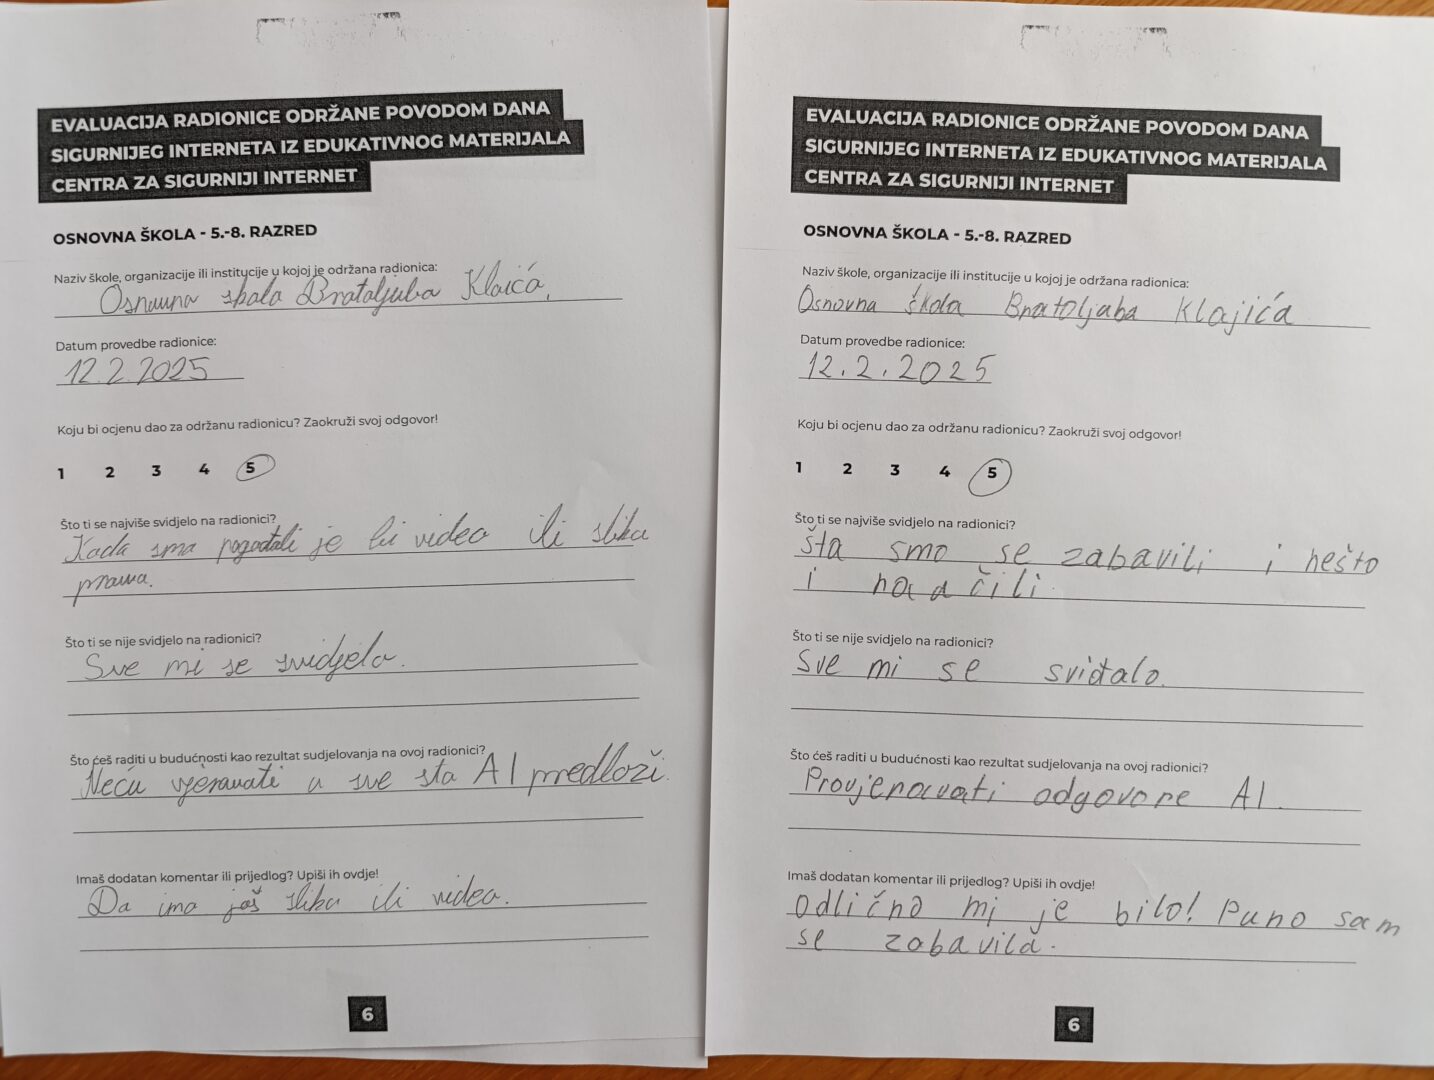 EVALUACIJA RADIONICE ODRŽANE POVODOM DANA
SIGURNIJEG INTERNETA IZ EDUKATIVNOG MATERIJALA
CENTRA ZA SIGURNIJI INTERNET
OSNOVNA ŠKOLA - 5.-8. RAZRED
Naziv škole, organizacije ili institucije u kojoj je održana radionica:
Osnovna škola Bratoljuba Klaića.
Datum provedbe radionice:
12.2.2025
Koju bi ocjenu dao za održanu radionicu? Zaokruži svoj odgovor!
1 2 3 4 5
Što ti se najviše svidjelo na radionici?
Kada smo pogađali je li video ili slika
prava.
Što ti se nije svidjelo na radionici?
Sve mi se svidjelo.
Što ćeš raditi u budućnosti kao rezultat sudjelovanja na ovoj radionici?
Neću vjerovati u sve sta AI predloži.
Imaš dodatan komentar ili prijedlog? Upiši ih ovdje!
Da ima još slika ili videa.
6
EVALUACIJA RADIONICE ODRŽANE POVODOM DANA
SIGURNIJEG INTERNETA IZ EDUKATIVNOG MATERIJALA
CENTRA ZA SIGURNIJI INTERNET
OSNOVNA ŠKOLA - 5.-8. RAZRED
Naziv škole, organizacije ili institucije u kojoj je održana radionica:
Osnovna škola Bratoljuba Klajića
Datum provedbe radionice:
12.2.2025
Koju bi ocjenu dao za održanu radionicu? Zaokruži svoj odgovor!
1 2 3 4 5
Što ti se najviše svidjelo na radionici?
šta smo se zabavili i nešto
i naučili.
Što ti se nije svidjelo na radionici?
Sve mi se sviđalo.
Što ćeš raditi u budućnosti kao rezultat sudjelovanja na ovoj radionici?
Provjeravati odgovore AI.
Imaš dodatan komentar ili prijedlog? Upiši ih ovdje!
Odlično mi je bilo! Puno sam
se zabavila.
6